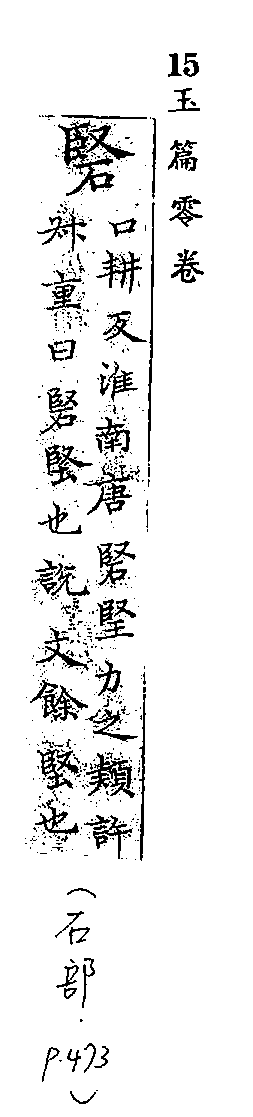 15 玉篇零卷
硻
口耕反淮南唐硻堅力之類許
叔重曰硻堅也說文餘堅也
(石部.
P.473)